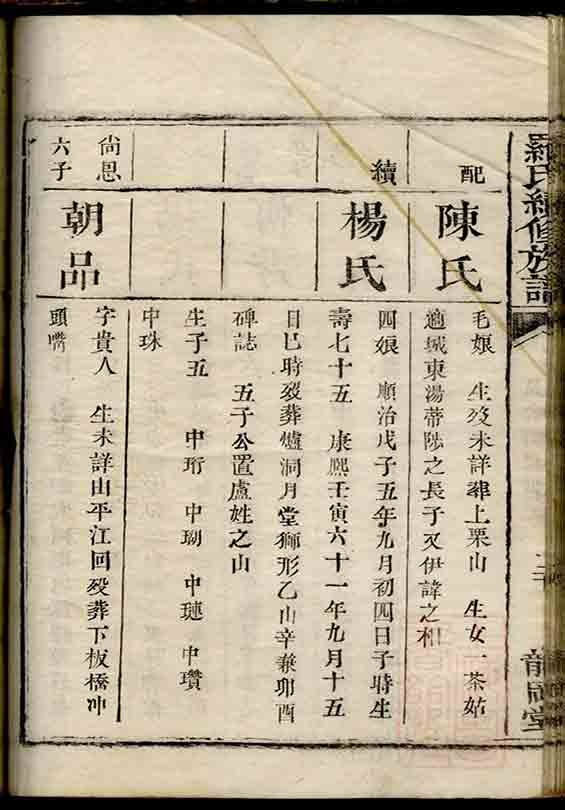 羅氏續修族譜
龍岡堂
配
陳氏
毛娘 生歿未詳葬上栗山 生女一茶姑
適城東湯蒂陟之長子又伊諱之相
續
楊氏
四娘 順治戊子五年九月初四日子時生
壽七十五 康熙壬寅六十一年九月十五
日巳時歿葬爐洞月堂獅形乙山辛兼卯酉
碑誌 五子公置盧姓之山
生子五 中珩 中瑚 中璉 中瓚
中珠
尙恩
六子
朝品
字貴人 生未詳由平江回歿葬下板橋冲
頭嘴